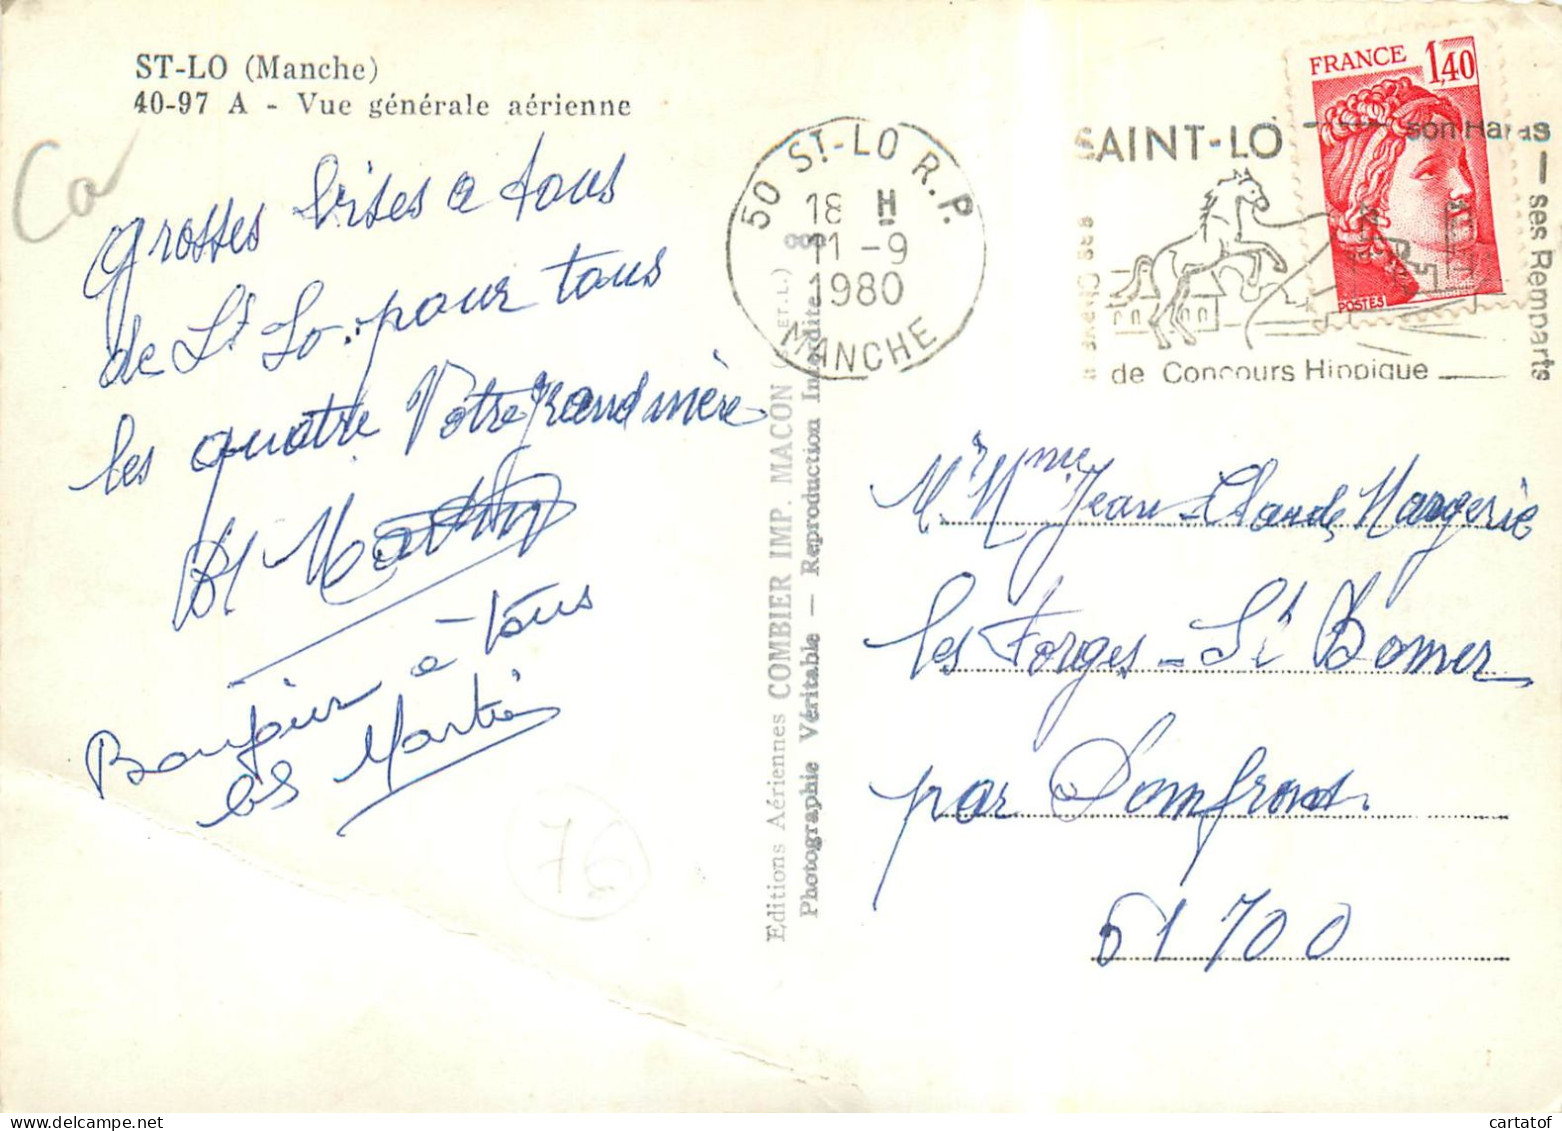 ST-LO (Manche)
40-97 A - Vue générale aérienne
Ca
grosses bises a tous
de St Lo. pour tous
les quatre Votre grand mère
Bonjour à tous
les Martin
76
Editions Aériennes COMBIER IMP. MACON (S. ET.L.)
Photographie Véritable — Reproduction Interdite
50 ST-LO R.P.
18 H
11 -9
1980
MANCHE
SAINT-LO
son Haras
ses Remparts
de Concours Hippique
ses Champs
FRANCE 1,40
POSTES
Mr Mme Jean-Claude Margerie
les Forges - St Bomer
par Domfront
61700
cartatof